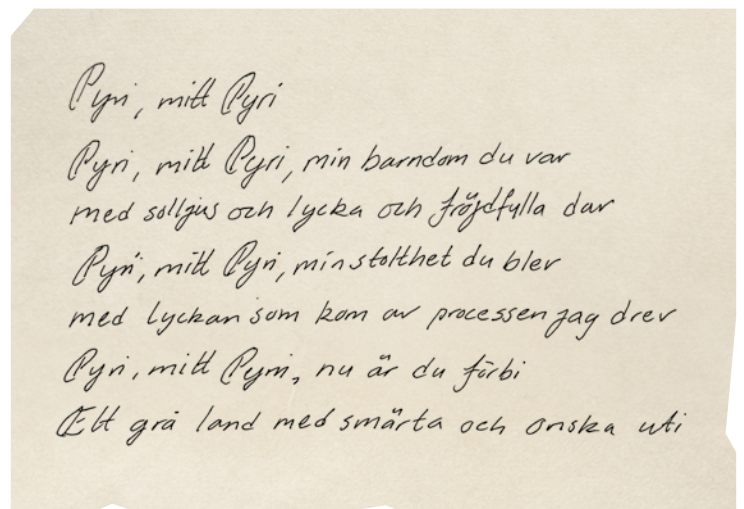 Pyri, mitt Pyri
Pyri, mitt Pyri, min barndom du var
med solljus och lycka och fröjdfulla dar
Pyri, mitt Pyri, min stolthet du blev
med lyckan som kom av processen jag drev
Pyri, mitt Pyri, nu är du förbi
Ett grå land med smärta och onska uti